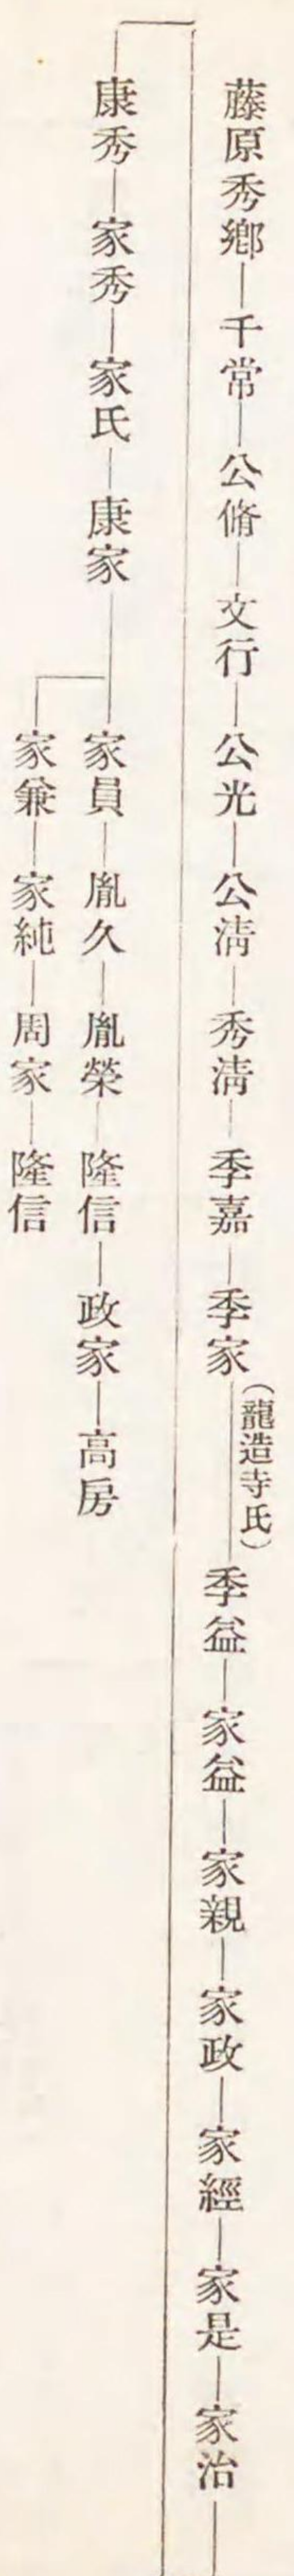 藤原秀鄕―千常―公脩―文行―公光―公淸―秀淸―季嘉―季家(龍造寺氏)―季益―家益―家親―家政―家經―家是―家治―
康秀―家秀―家氏―康家―家員―胤久―胤榮―隆信―政家―高房
家兼―家純―周家―隆信